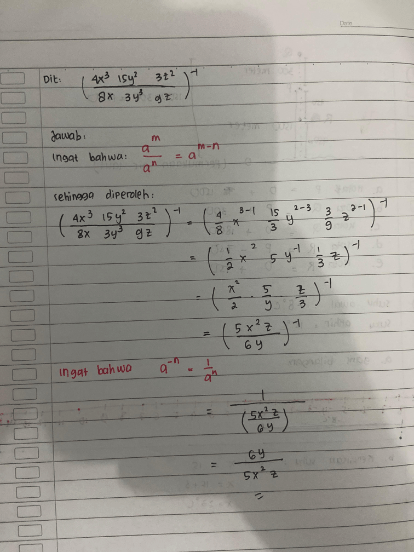 Date
Dit: (4x³ 15y² 3z² / 8x 3y³ 9z)⁻¹
Jawab:
Ingat bahwa: aᵐ/aⁿ = aᵐ⁻ⁿ
sehingga diperoleh:
(4x³ 15y² 3z² / 8x 3y³ 9z)⁻¹ = (4/8 x³⁻¹ 15/3 y²⁻³ 3/9 z²⁻¹)⁻¹
= (1/2 x² 5 y⁻¹ 1/3 z)⁻¹
= (x²/2 · 5/y · z/3)⁻¹
= (5x²z / 6y)⁻¹
Ingat bahwa a⁻ⁿ = 1/aⁿ
= 1 / (5x²z / 6y)
= 6y / 5x²z